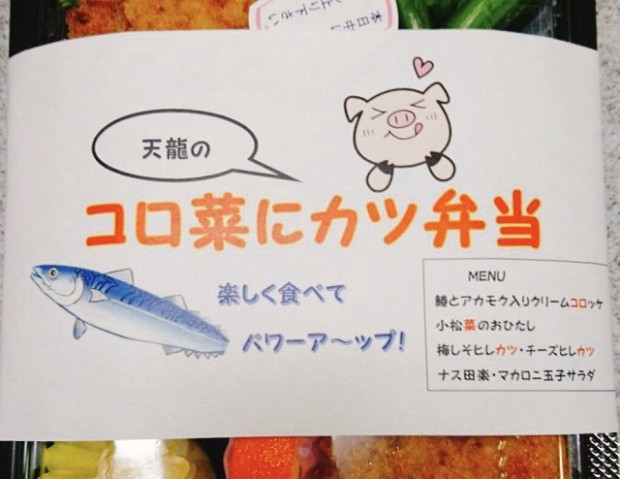 本日中に
上り下さい。
天龍の
コロ菜にカツ弁当
楽しく食べて
パワーア～ップ!
MENU
鱒とアカモク入りクリームコロッケ
小松菜のおひたし
梅しそヒレカツ・チーズヒレカツ
ナス田楽・マカロニ玉子サラダ